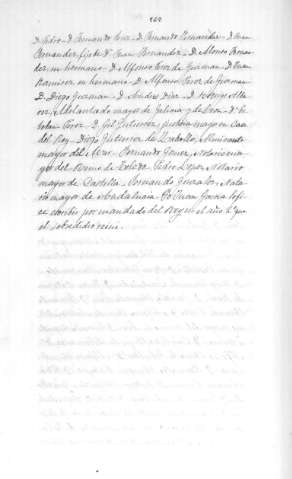 D. Pedro. D. Fernando Perez. D. Fernando Fernandez. D. Juan
Fernandez, fijo de D. Juan Fernandez. D. Alonso Fernan-
dez, su hermano. D. Alfonso Perez de Guzman. D. Juan
Ramirez, su hermano. D. Alfonso Perez de Guzman.
D. Diego Guzman. D. Rodrigo Alva-
rez, Adelantado mayor de Galicia y de Leon. D. Es-
teban Perez. D. Gil Gutierrez, justicia mayor en Casa
del Rey. Diego Gutierrez de Ceballos, Almirante
mayor del Mar. Fernando Gomez, Notario ma-
yor del Reino de Toledo. Pedro Lopez, Notario
mayor de Castilla. Fernando Gonzalez, Nota-
rio mayor de Andalucia. Yo Juan Garcia lo fi-
ce escribir por mandado del Rey en el año que
el sobredicho reino.